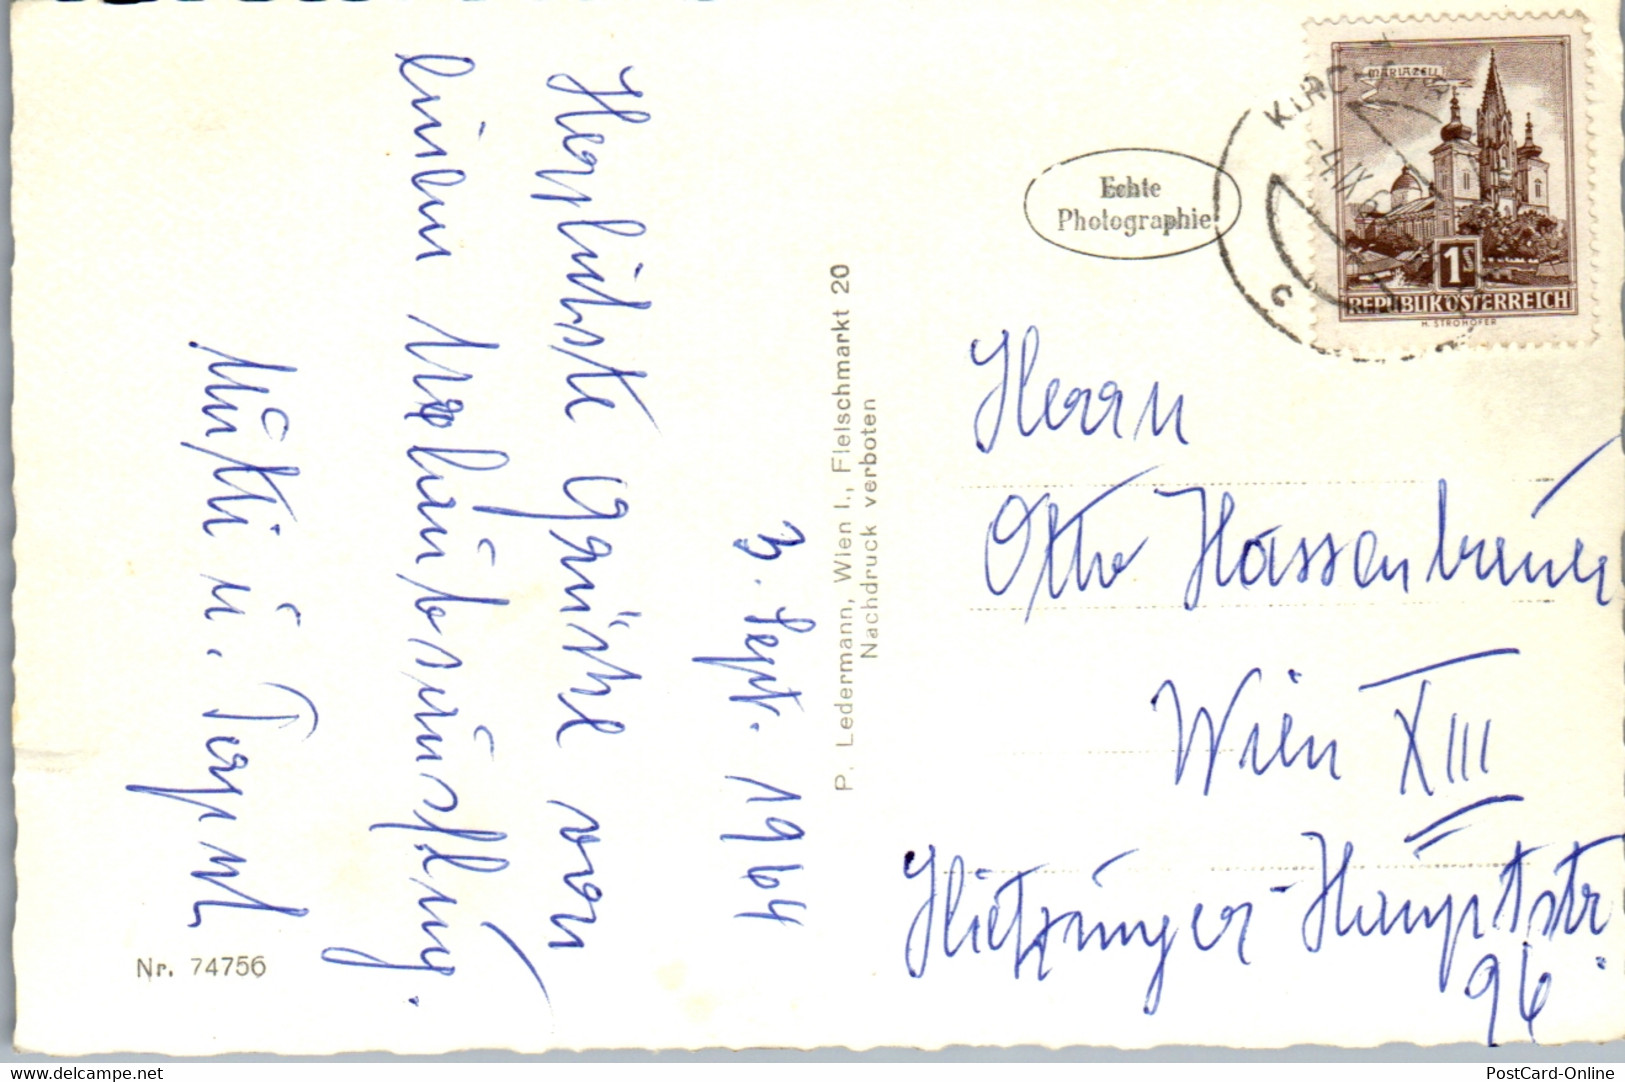 3. Sept. 1964
Herzlichste Grüsse von
einem
Mutti u.
Nr. 74756
P. Ledermann, Wien I., Fleischmarkt 20
Nachdruck verboten
Echte
Photographie
MARIAZELL
1S
REPUBLIK ÖSTERREICH
H. STROHOFER
-4.IX.
C
Herrn
Otto Hassenbrunner
Wien XIII
Hietzinger-Hauptstr.
96
delcampe.net
PostCard-Online